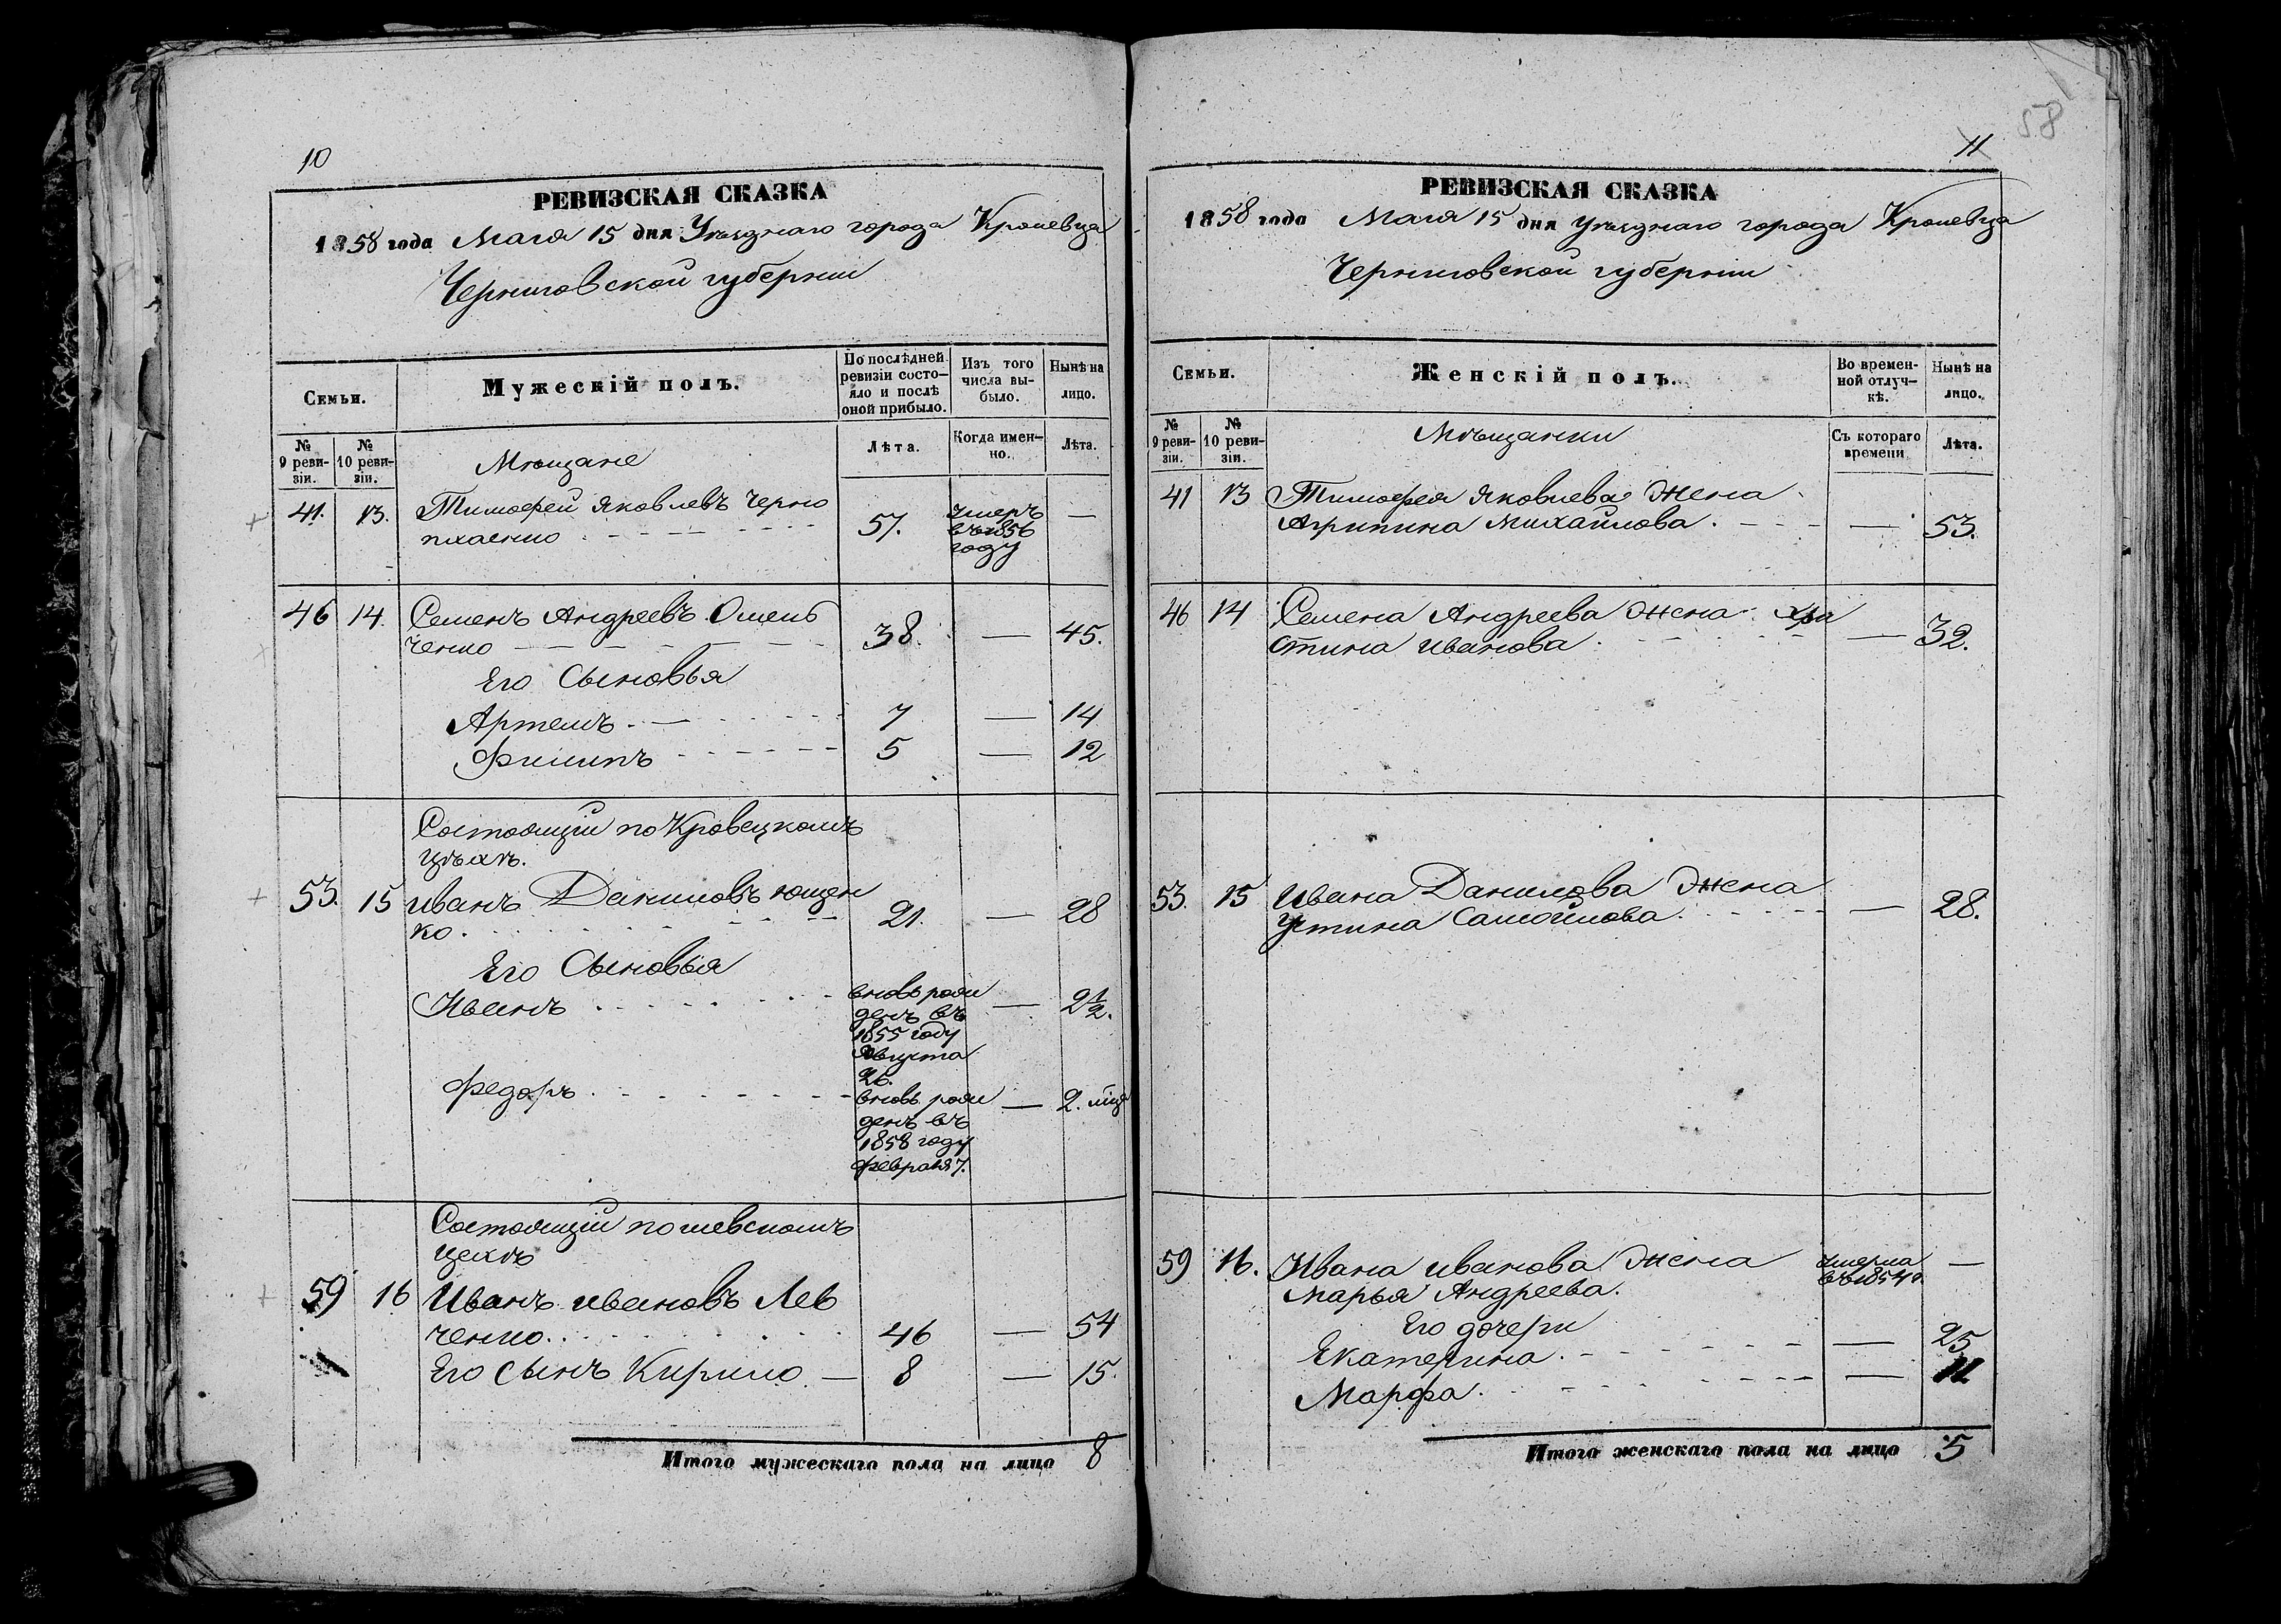 10
РЕВИЗСКАЯ СКАЗКА
1858 года Мая 15 дня Уѣзднаго города Кролевца
Черниговской губерніи
Семьи.
Мужескій полъ.
По послѣдней ревизіи состо-
яло и послѣ
оной прибыло.
Изъ того
числа вы-
было.
Нынѣ на
лицо.
№
9 реви-
зіи.
№
10 реви-
зіи.
Мѣщане
Лѣта.
Когда имен-
но.
Лѣта.
41. 13. Тимофей Яковлевъ Черно
плаенко 57. умеръ
въ 1856
году —
46 14. Семенъ Андреевъ Омель
ченко 38. — 45.
Его Сыновья
Артемъ 7 — 14
Филипъ 5 — 12
Состоящіи по Кровецкомъ
цѣхѣ.
53. 15 Иванъ Даниловъ Ющен
ко. 21. — 28
Его Сыновья
Иванъ вновь рож
денъ въ
1855 году
Августа
26. — 2½.
Федоръ вновь рож
денъ въ
1858 году
Февраля 7. — 2. мца
Состоящіи по шевскомъ
цехѣ
59 16 Иванъ Ивановъ Лев
ченко 46 — 54
Его Сынъ Кирило 8 — 15.
Итого мужескаго пола на лицо 8
58
11
РЕВИЗСКАЯ СКАЗКА
1858 года Мая 15 дня Уѣзднаго города Кролевца
Черниговской губерніи
Семьи.
Женскій полъ.
Во времен-
ной отлуч-
кѣ.
Нынѣ на
лицо.
№
9 реви-
зіи.
№
10 реви-
зіи.
Мѣщанки
Съ котораго
времени
Лѣта.
41 13 Тимофея Яковлева Жена
Агрипина Михайлова. — 53.
46 14 Семена Андреева Жена Хри
стина Иванова — 32.
53. 15 Ивана Данилова Жена
Устина Самойлова. — 28.
59 16. Ивана Иванова Жена
Марья Андреева. умерла
въ 1854 г. —
Его дочери
Екатерина. — 25
Марфа. — 11
Итого женскаго пола на лицо 5